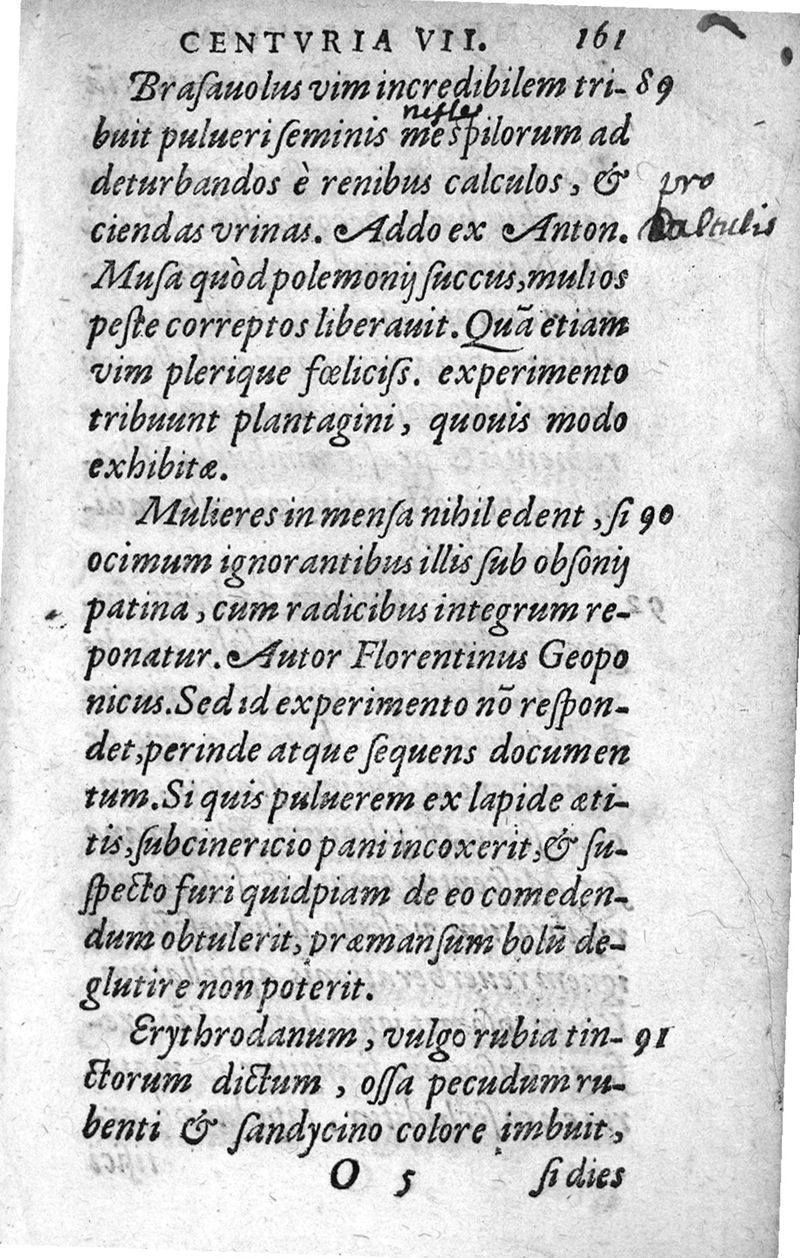 CENTVRIA VII. 161
Braſauolus vim incredibilem tri- 89
buit pulueri ſeminis meſpilorum ad
deturbandos è renibus calculos, & pro
ciendas vrinas. Addo ex Anton. Calculis
Muſa quòd polemonij ſuccus, multos
peſte correptos liberauit. Quã etiam
vim plerique fœliciſſ. experimento
tribuunt plantagini, quouis modo
exhibitæ.
Mulieres in menſa nihil edent, ſi 90
ocimum ignorantibus illis ſub obſonij
patina, cum radicibus integrum re-
ponatur. Autor Florentinus Geopo
nicus. Sed id experimento nõ reſpon-
det, perinde atque ſequens documen
tum. Si quis puluerem ex lapide æti-
tis, ſubcinericio pani incoxerit, & ſu-
ſpecto furi quidpiam de eo comeden-
dum obtulerit, præmanſum bolũ de-
glutire non poterit.
Erythrodanum, vulgo rubia tin- 91
ctorum dictum, oſſa pecudum ru-
benti & ſandycino colore imbuit,
O 5 ſi dies